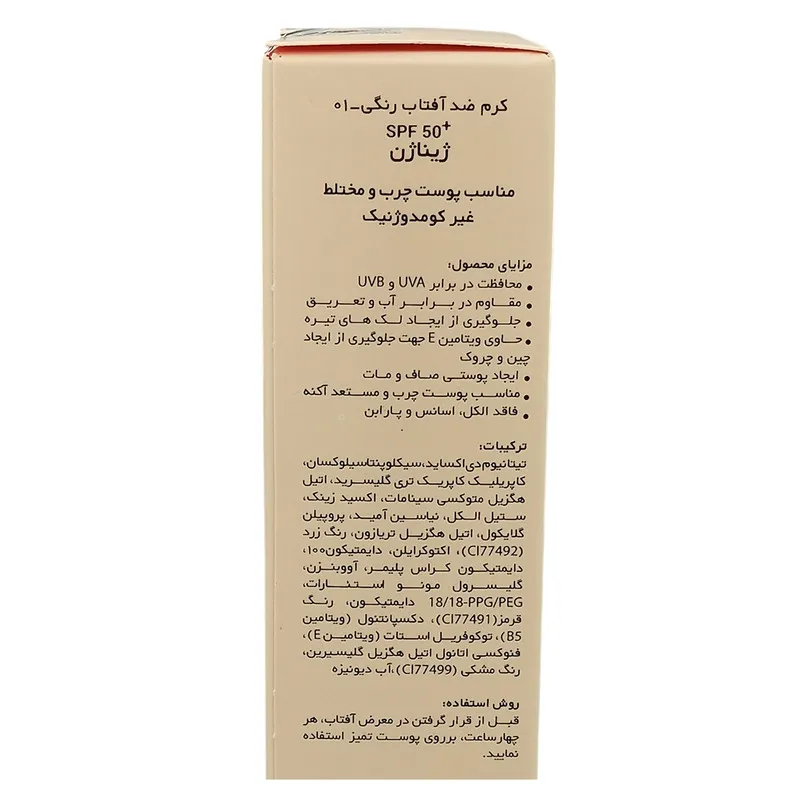 کرم ضد آفتاب رنگی-۰۱
SPF 50+
ژیناژن
مناسب پوست چرب و مختلط
غیر کومدوژنیک
مزایای محصول:
• محافظت در برابر UVA و UVB
• مقـاوم در بــرابـر آب و تعـریـق
• جلـوگیری از ایجـاد لـک هـای تیـره
• حـاوی ویتامین E جهت جلوگیری از ایجاد
چین و چروک
• ایجاد پوستـی صـاف و مـات
• مناسـب پوسـت چرب و مسـتعد آکنه
• فاقد الکل، اسانس و پارابن
ترکیبات:
تیتانیوم دی اکساید، سیکلوپنتاسیلوکسان،
کاپریلیـک کاپریـک تری گلیسـرید، اتیل
هگزیل متوکسی سینامات، اکسید زینک،
ستیل الـکل، نیاسین آمیـد، پروپیلن
گلایکول، اتیل هگزیـل تریازون، رنگ زرد
(CI77492)، اکتوکرایلن، دایمتیکون۱۰۰،
دایمتیکـون کـراس پلیمـر، آووبنـزن،
گلیسـرول مونـو اسـتئـارات،
18/18-PPG/PEG دایمتیکـون، رنـگ
قرمز(CI77491)، دکسپانتنول (ویتامین
B5)، توکوفریـل استات (ویتامیـن E)،
فنوکسی اتانول اتیل هگزیل گلیسیرین،
رنگ مشکی (CI77499)،آب دیونیزه
روش استفاده:
قبـل از قـرار گرفتن در معرض آفتاب، هر
چهارساعت، برروی پوست تمیز استفاده
نمایید.